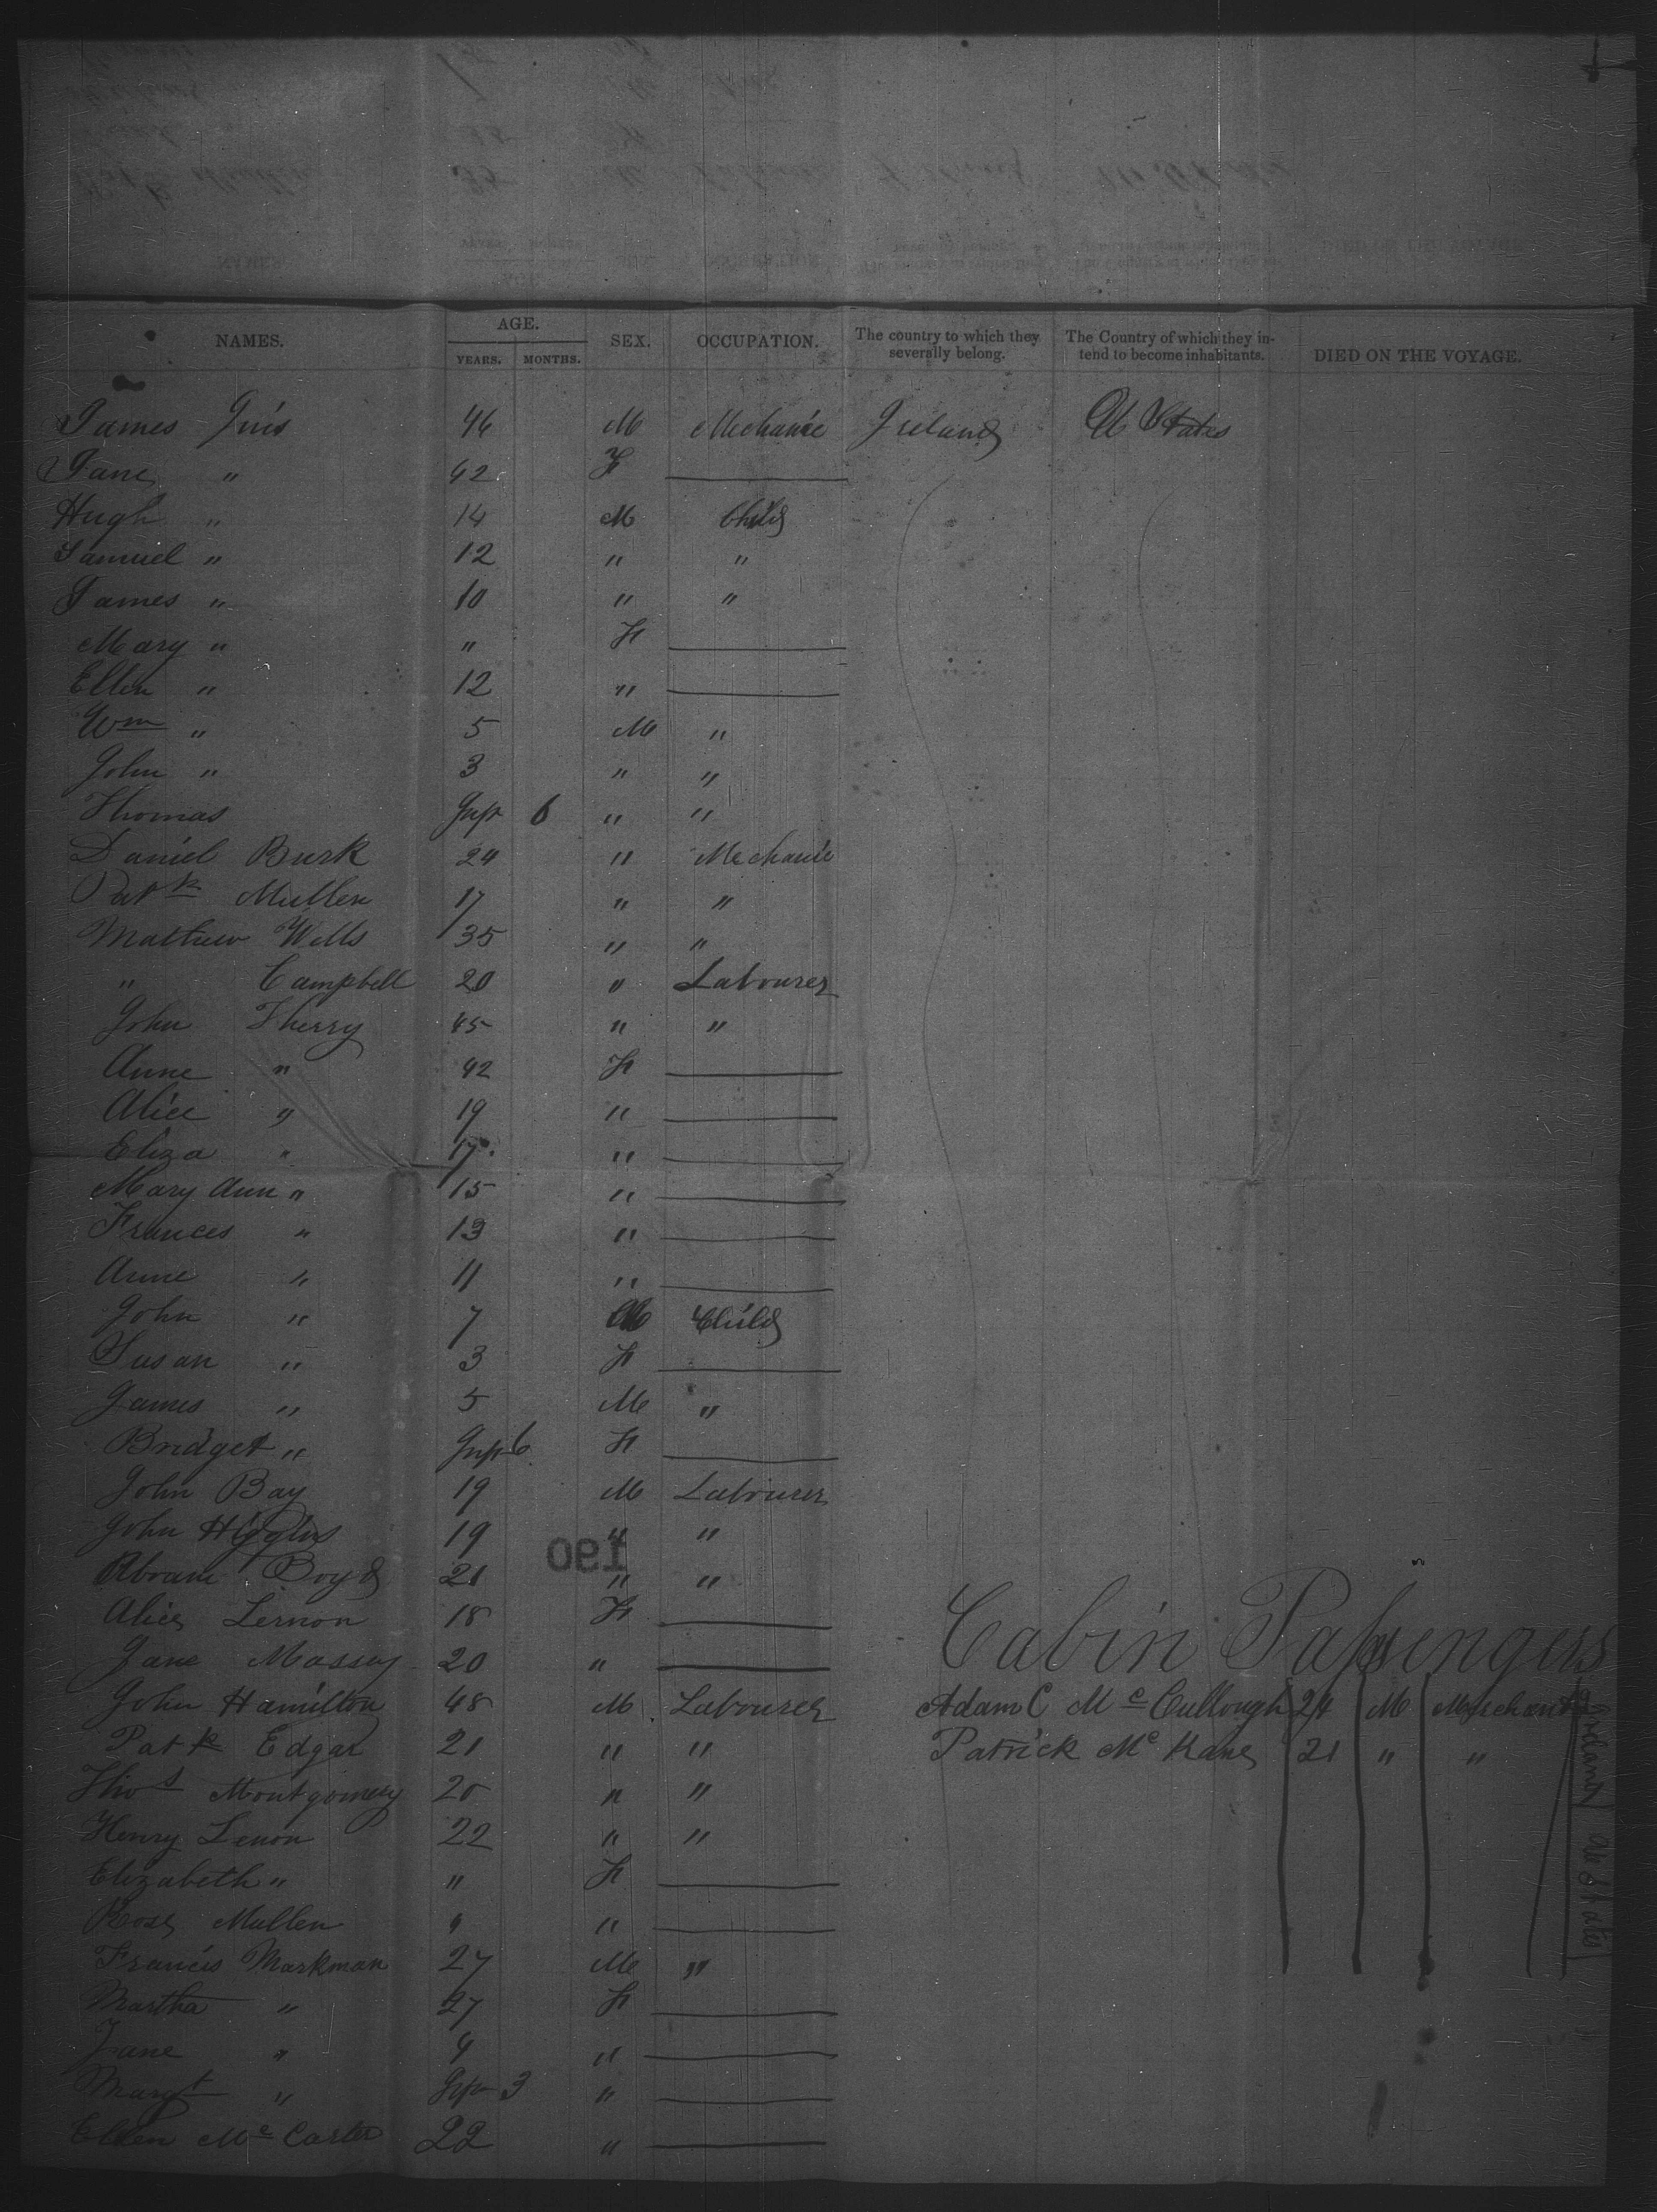 NAMES. AGE. YEARS. MONTHS. SEX. OCCUPATION. The country to which they severally belong. The Country of which they in-tend to become inhabitants. DIED ON THE VOYAGE.
James 46 M Mechanic Ireland U States
Jane " 42 F
Hugh " 14 M Child
Samuel " 12 " "
James " 10 " "
Mary " " F
Ellen " 12 "
Wm " 5 M "
John " 3 " "
Thomas Inft 6 " "
Daniel Burk 24 " Mechanic
Patk Mullen 17 " "
Mathew Wells 35 " "
" Campbell 20 " Labourer
John Therry 45 " "
Anne " 42 F
Alice " 19 "
Eliza " 17 "
Mary Ann " 15 "
Frances " 13 "
Anne " 11 "
John " 7 M Child
Susan " 3 F
James " 5 M "
Bridget " Inft 6 F
John Bay 19 M Labourer
John Higgins 19 " "
190
Abram Boyd 21 " "
Alice Lernon 18 F
Jane Massey 20 "
John Hamilton 48 M Labourer
Patk Edgar 21 " "
Thos Montgomery 20 " "
Henry Lenon 22 " "
Elizabeth " " F
Rose Mullen " "
Francis Markman 27 M "
Martha " 27 F
Jane " 4 "
Margt " Inft 3 "
Ellen Mc Carter 22 "
Cabin Passengers
Adam C Mc Cullough 24 M Merchant
Patrick Mc Kane 21 " "
Ireland U States